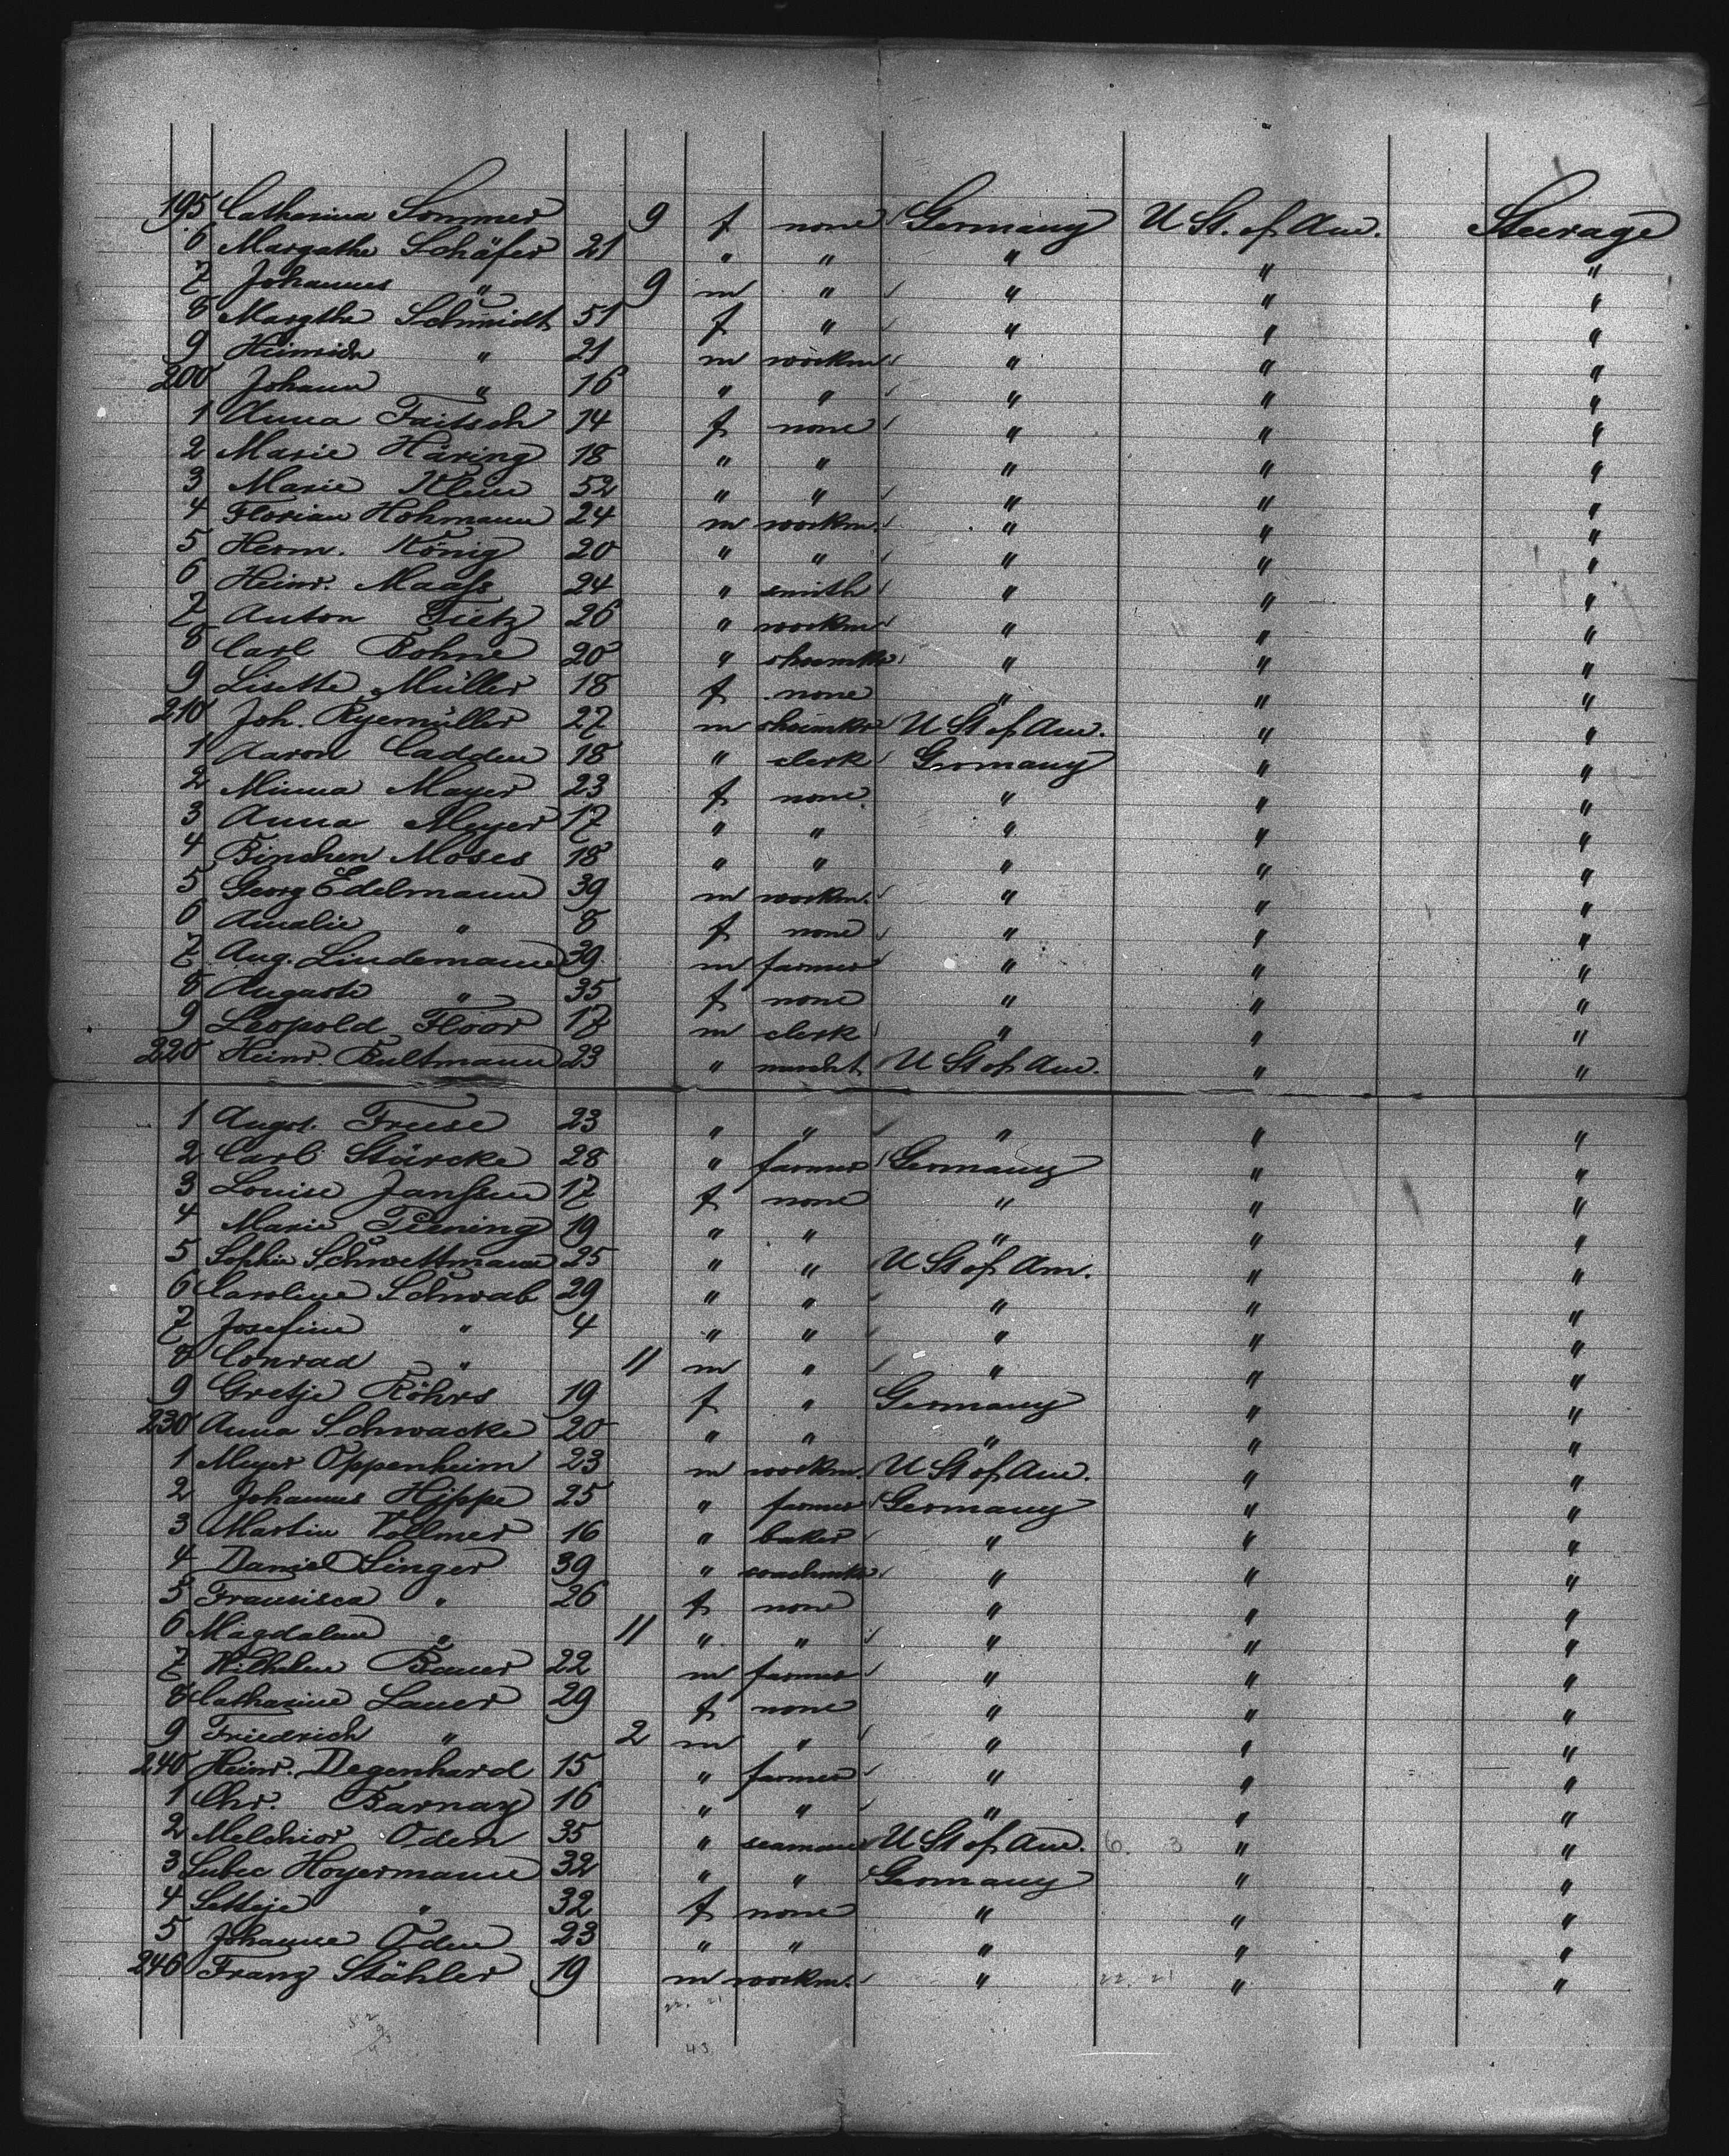 195 Catharina Sommer 9 f none Germany U St. of Am. Steerage
6 Margathe Schäfer 21 " " " " "
7 Johannes " 9 m " " " "
8 Margthe Schmidt 51 f " " " "
9 Heinrich " 21 m workm " " "
200 Johann " 16 " " " " "
1 Anna Fritsch 14 f none " " "
2 Marie Häring 18 " " " " "
3 Marie Klein 52 " " " " "
4 Florian Hohmann 24 m workm. " " "
5 Herm. König 20 " " " " "
6 Heinr. Maass 24 " smith " " "
7 Anton Tietz 26 " workm " " "
8 Carl Bohne 20 " shoemkr " " "
9 Lisette Müller 18 f none " " "
210 Joh. Ryemüller 27 m shoemkr U St of Am. " "
1 Aaron Cadden 18 " clerk Germany " "
2 Minna Mayer 23 f none " " "
3 Anna Meyer 17 " " " " "
4 Binchen Moses 18 " " " " "
5 Georg Edelmann 39 m workm. " " "
6 Amalie " 8 f none " " "
7 Aug. Lindemann 39 m farmer " " "
8 Auguste " 35 f none " " "
9 Leopold Floor 17 m clerk " " "
220 Heinr. Bultmann 23 " mercht U St of Am. " "
1 Augst. Freese 23 " " " " "
2 Carl Stärcke 28 " farmer Germany " "
3 Louise Janssen 17 f none " " "
4 Marie Pening 19 " " " " "
5 Sophie Schwettmann 25 " " U St of Am. " "
6 Caroline Schwab 29 " " " " "
7 Josefine " 4 " " " " "
8 Conrad " 11 m " " " "
9 Gretje Röhrs 19 f " Germany " "
230 Anna Schwacke 20 " " " " "
1 Meyer Oppenheim 23 m workm. U St of Am. " "
2 Johannes Hippe 25 " farmer Germany " "
3 Martin Vollmer 16 " baker " " "
4 Daniel Singer 39 " " " "
5 Fransisca " 26 f none " " "
6 Magdalene " 11 " " " " "
7 Wilhelm Bauer 22 m farmer " " "
8 Catharine Lauer 29 f none " " "
9 Friedrich " 2 m " " " "
240 Heinr. Degenhard 15 " farmer " " "
1 Chr. Barnay 16 " " " " "
2 Melchior Oden 35 " seaman U St of Am. 6. 3 " "
3 Hoyermann 32 " " Germany " "
4 Settje " 32 f none " " "
5 Johanne Oden 23 " " " " "
246 Franz Stähler 19 m workm. " 22. 21 " "
22. 21
43